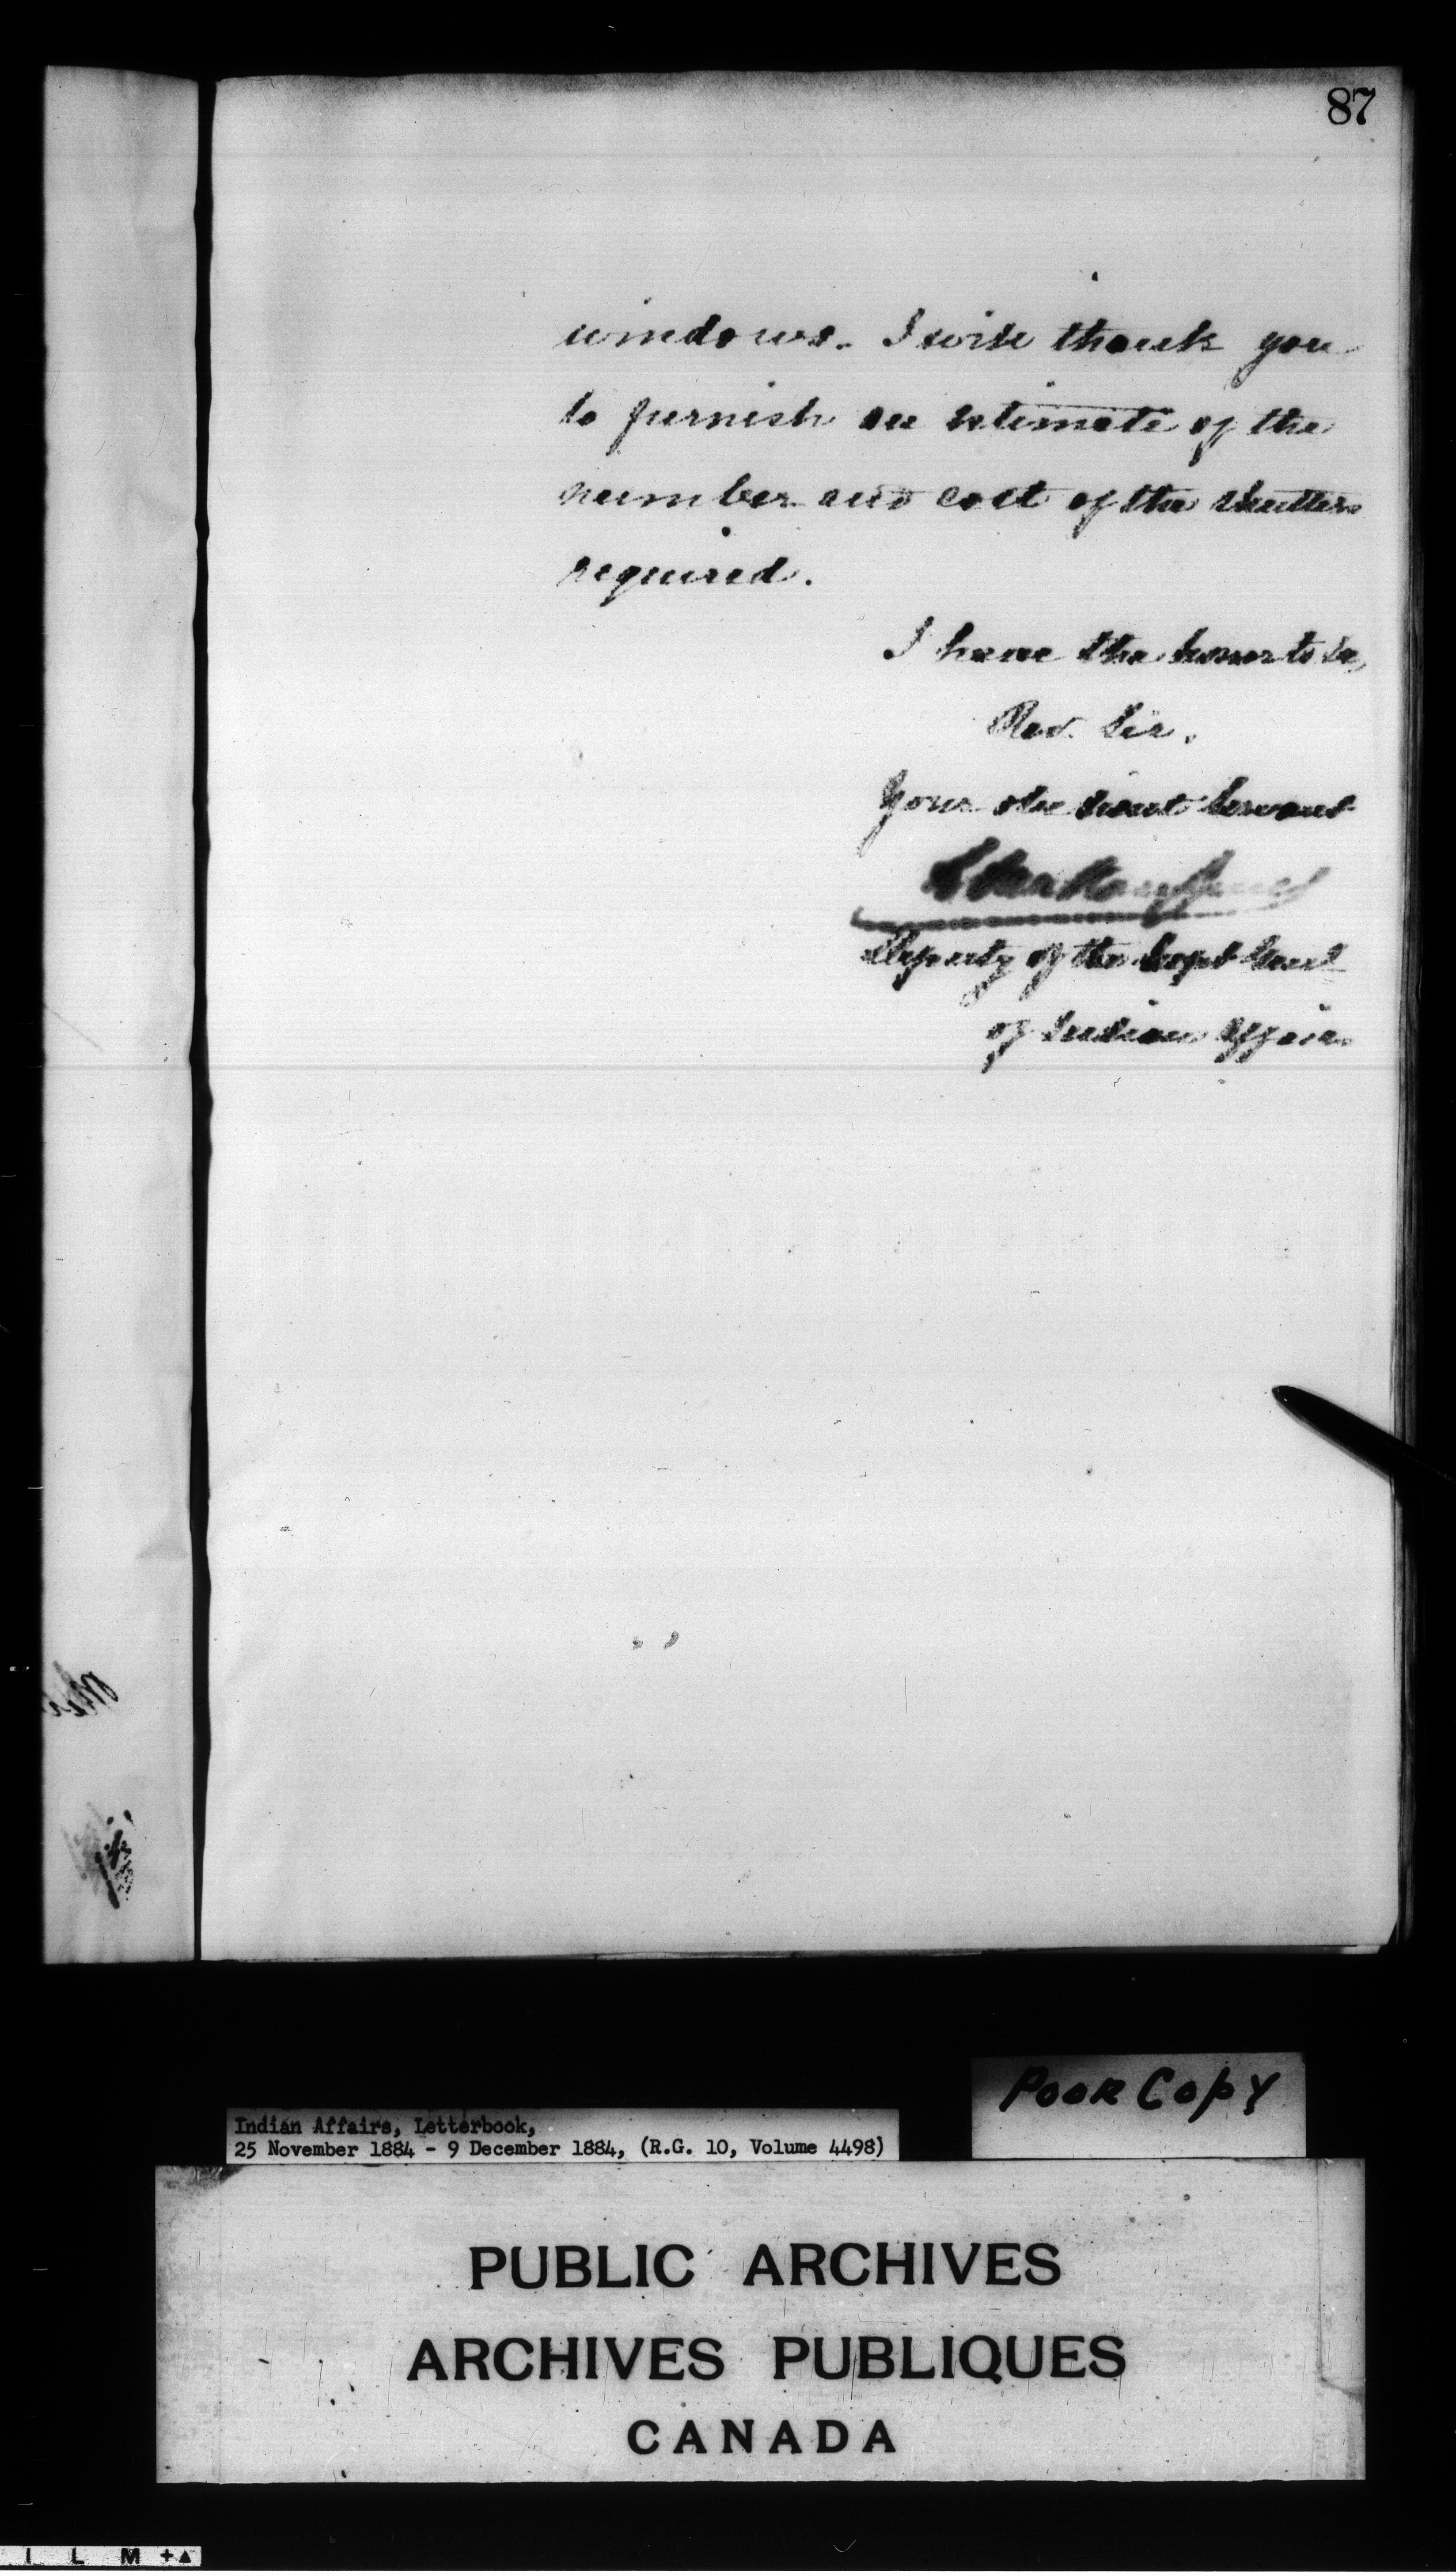 87
windows. I will thank you
to furnish an estimate of the
number and cost of the shutters
required.
I have the honor to be,
Rev. Sir,
Your obedient Servant
Deputy of the Supt Genl
of Indian Affairs
Poor Copy
Indian Affairs, Letterbook,
25 November 1884 - 9 December 1884, (R.G. 10, Volume 4498)
PUBLIC ARCHIVES
ARCHIVES PUBLIQUES
CANADA